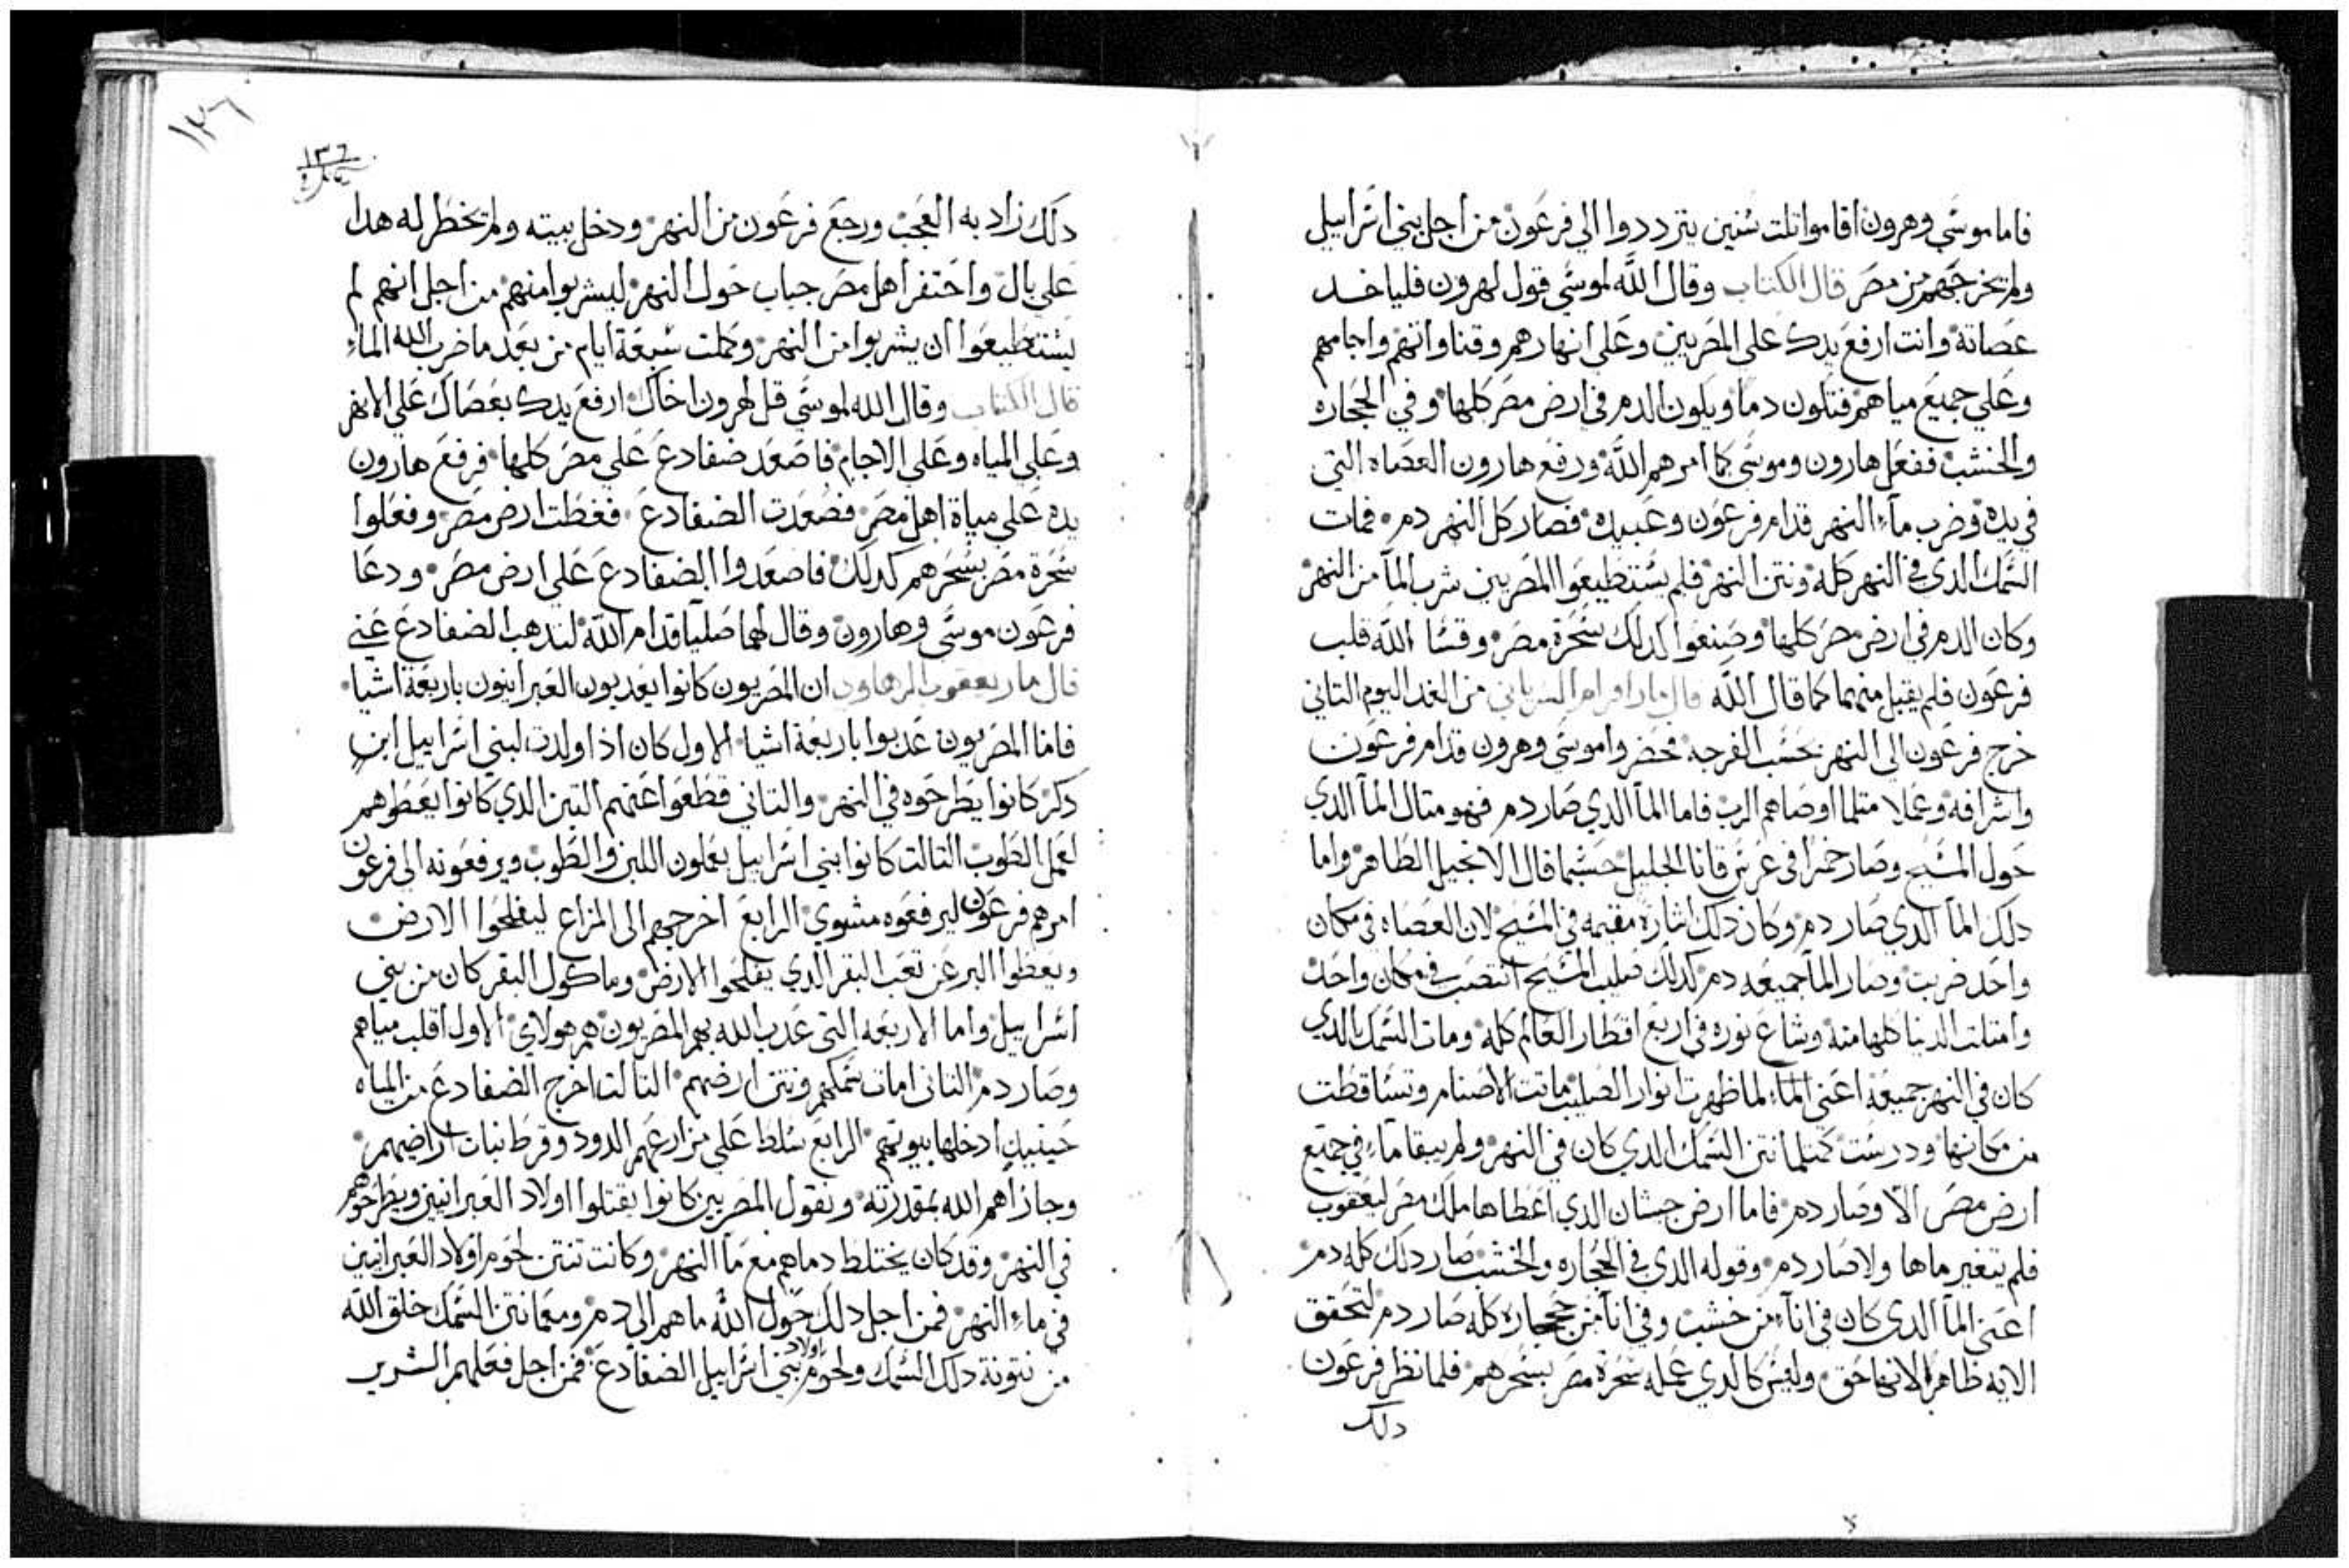 فاما موسي وهرون اقاموا تلت سنين يترددوا الي فرعون من اجل بني اسراييل
ولم يخرجهم من مصر قال الكتاب وقال الله لموسي قول لهرون فلياخد
عصاته وانت ارفع يدك علي المصريين وعلي انهارهم وقناواتهم واجامهم
وعلي جميع مياههم فتكون دما ويكون الدم في ارض مصر كلها وفي الحجاره
والخشب ففعل هارون وموسي كما امرهم الله ورفع هارون العصاه التي
في يده وضرب ماء النهر قدام فرعون وعبيده فصار كل النهر دم فمات
السمك الدي في النهر كله ونتن النهر فلم يستطيعوا المصريين شرب المآ من النهر
وكان الدم في ارض مصر كلها وصنعوا كدلك سحرة مصر وقسا الله قلب
فرعون فلم يقبل منهما كما قال الله قال مار افرام السرياني من الغد اليوم التاني
خرج فرعون الي النهر بحسب الفرجه فحضروا موسي وهرون قدام فرعون
واشرافه وعملا متلما اوصاهم الرب فاما المآ الدي صار دم فهو متال المآ الدي
حول المسيح وصار خمرا في عرس قانا الجليل حسبما قال الانجيل الطاهر واما
دلك المآ الدي صار دم وكان دلك اشارة مقيمه في المسيح لان العصاه في مكان
واحد ضربت وصار المآ جميعه دم كدلك صليب المسيح انتصب في مكان واحد
وامتلت الدنيا كلها منه وشاع نوره في اربع اقطار العالم كله ومات السمك الدي
كان في النهر جميعه اعني الماء لما ظهرت انوار الصليب ماتت الاصنام وتساقطت
من مكانها ودرست كمتلما نتن السمك الدي كان في النهر ولم يبقا ماء في جميع
ارض مصر الا وصار دم فاما ارض جيشان الدي اعطاها ملك مصر ليعقوب
فلم يتغير ماها ولا صار دم وقوله الدي في الحجاره والخشب صار دلك كله دم
اعني المآ الدي كان في انآء من خشب وفي انآ من حجاره كله صار دم لتحقق
الايه ظاهرا لانها حق وليس كالدي عمله سحرة مصر بسحرهم فلما نظر فرعون
دلك
١٣٦
١٣٦
دلك زاد به العجب ورجع فرعون من النهر ودخل بيته ولم يخطر له هدا
علي بال واحتفر اهل مصر جباب حول النهر ليشربوا منهم من اجل انهم لم
يستطيعوا ان يشربوا من النهر وكملت سبعة ايام من بعد ما ضرب الله الماء
قال الكتاب وقال الله لموسي قل لهرون اخاك ارفع يدك بعصاك علي الانهر
وعلي المياه وعلي الاجام فاصعد ضفادع علي مصر كلها فرفع هارون
يده علي مياة اهل مصر فصعدت الضفادع فغطت ارض مصر وفعلوا
سحرة مصر بسحرهم كدلك فاصعدوا الضفادع علي ارض مصر ودعا
فرعون موسي وهارون وقال لهما صليا قدام الله لتدهب الضفادع عني
قال مار يعقوب الرهاوي ان المصريون كانوا يعدبون العبرانيون باربعة اشيا
فاما المصريون عدبوا باربعة اشيا الاول كان ادا ولدت لبني اسراييل ابن
دكر كانوا يطرحوه في النهر والتاني قطعوا عنهم التبن الدي كانوا يعطوهم
لعمل الطوب التالت كانوا بني اسراييل يعملون اللبن والطوب ويرفعونه الي فرعون
امرهم فرعون ليرفعوه مشوي الرابع اخرجهم الي المزاع ليفلحوا الارض
ويعطوا البر عن تعب البقر الدي يفلحوا الارض وماكول البقر كان من بني
اسراييل واما الاربعه التي عدب الله بهم المصريون هم هولاي الاول اقلب مياهم
وصار دم التاني امات سمكهم ونتن ارضهم التالت اخرج الضفادع من المياه
حينيد ادخلها بيوتهم الرابع سلط علي مزارعهم الدود وقرط نبات اراضيهم
وجازاهم الله بمقدرته ونقول المصريين كانوا يقتلوا اولاد العبرانيين ويطرحوهم
في النهر وقد كان يختلط دماهم مع مآ النهر وكانت تنتن لحوم اولاد العبرانيين
في ماء النهر فمن اجل دلك حول الله ماهم الي دم ومعما نتن السمك خلق الله
من نتونة دلك السمك ولحوم اولاد بني اسراييل الضفادع فمن اجل فعلهم الشرير